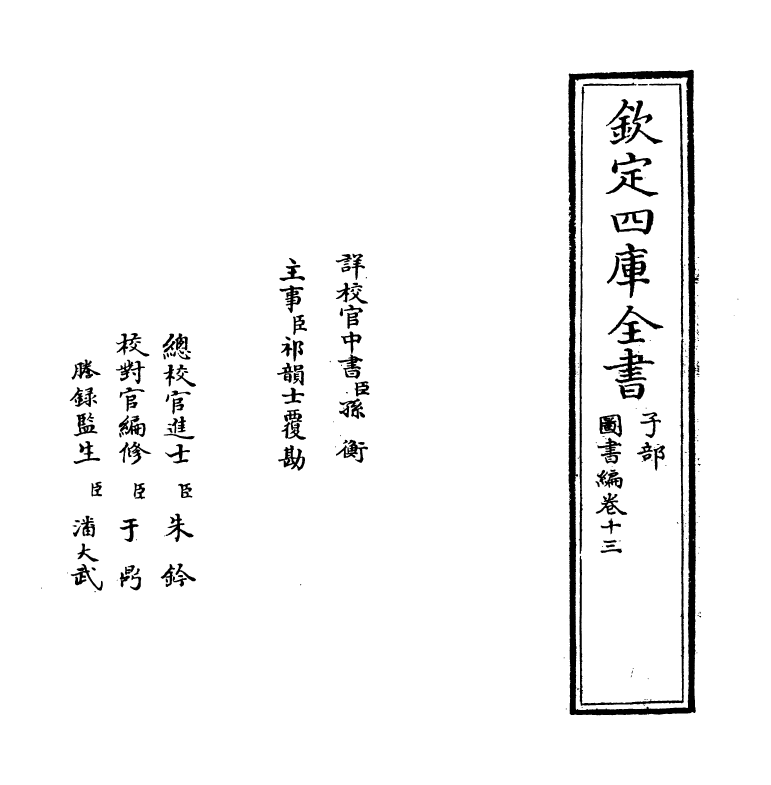 欽定四庫全書
子部
圖書編卷十三
詳校官中書臣孫衡
主事臣祁韻士覆勘
總校官進士臣朱鈐
校對官編修臣于鼎
謄録監生臣潘大武